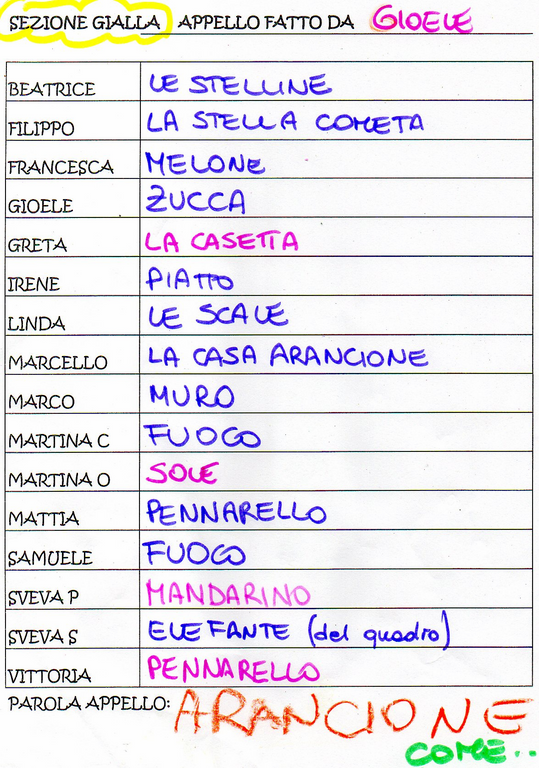 SEZIONE GIALLA APPELLO FATTO DA GIOELE
BEATRICE LE STELLINE
FILIPPO LA STELLA COMETA
FRANCESCA MELONE
GIOELE ZUCCA
GRETA LA CASETTA
IRENE PIATTO
LINDA LE SCALE
MARCELLO LA CASA ARANCIONE
MARCO MURO
MARTINA C FUOCO
MARTINA O SOLE
MATTIA PENNARELLO
SAMUELE FUOCO
SVEVA P MANDARINO
SVEVA S ELEFANTE (del quadro)
VITTORIA PENNARELLO
PAROLA APPELLO: ARANCIONE
COME..